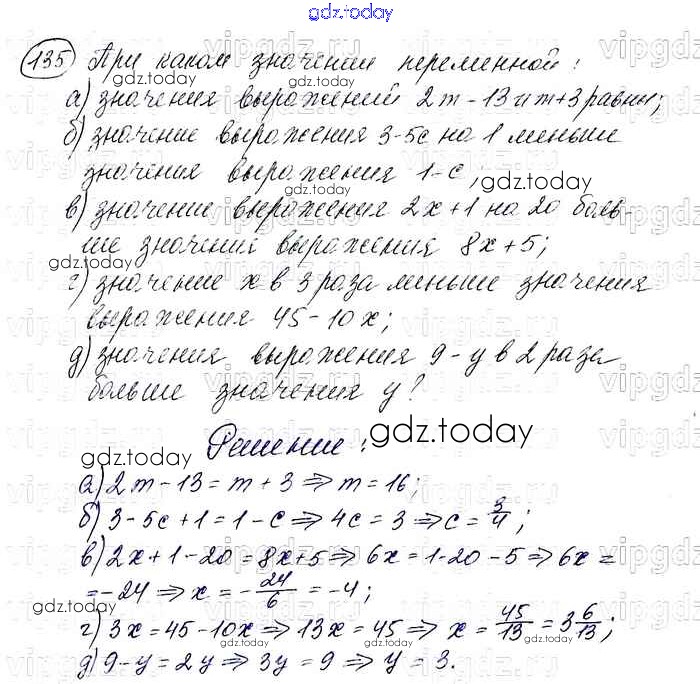 gdz.today
135 При каком значении переменной:
а) значения выражений 2m-13 и m+3 равны;
б) значение выражения 3-5c на 1 меньше
значения выражения 1-c,
gdz.today
в) значение выражения 2x+1 на 20 боль-
ше значений выражения 8x+5;
gdz.today
г) значение x в 3 раза меньше значения
выражения 45-10x;
д) значения выражения 9-y в 2 раза
больше значения y?
Решение: gdz.today
gdz.today
а) 2m-13=m+3⇒m=16;
б) 3-5c+1=1-c⇒4c=3⇒c=3/4;
в) 2x+1-20=8x+5⇒6x=1-20-5⇒6x=
=-24⇒x=-24/6=-4;
gdz.today
г) 3x=45-10x⇒13x=45⇒x=45/13=3 6/13;
д) 9-y=2y⇒3y=9⇒y=3.